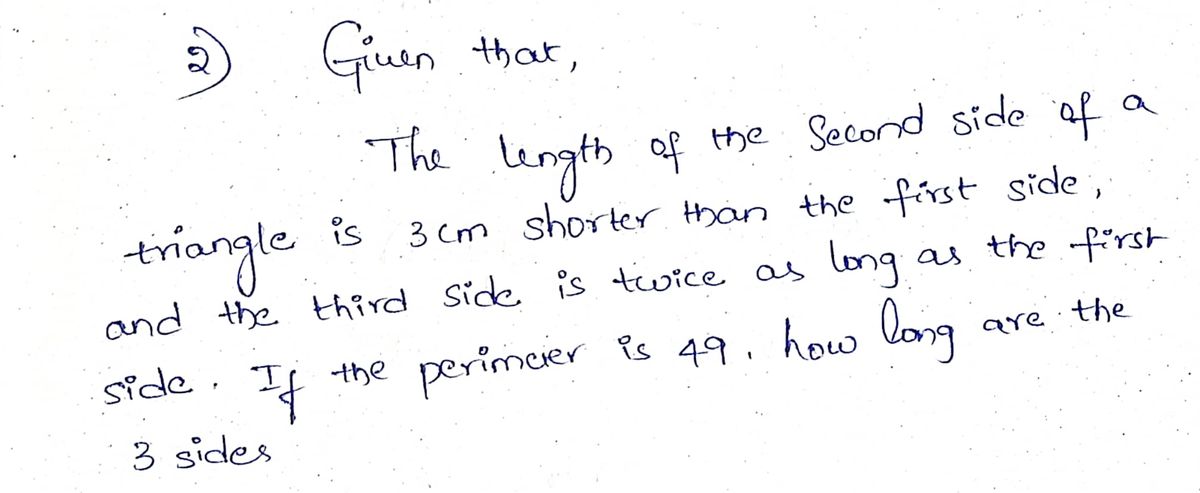 2) Given that,
The length of the Second side of a
triangle is 3cm shorter than the first side,
and the third side is twice as long as the first
side. If the perimeter is 49, how long are the
3 sides